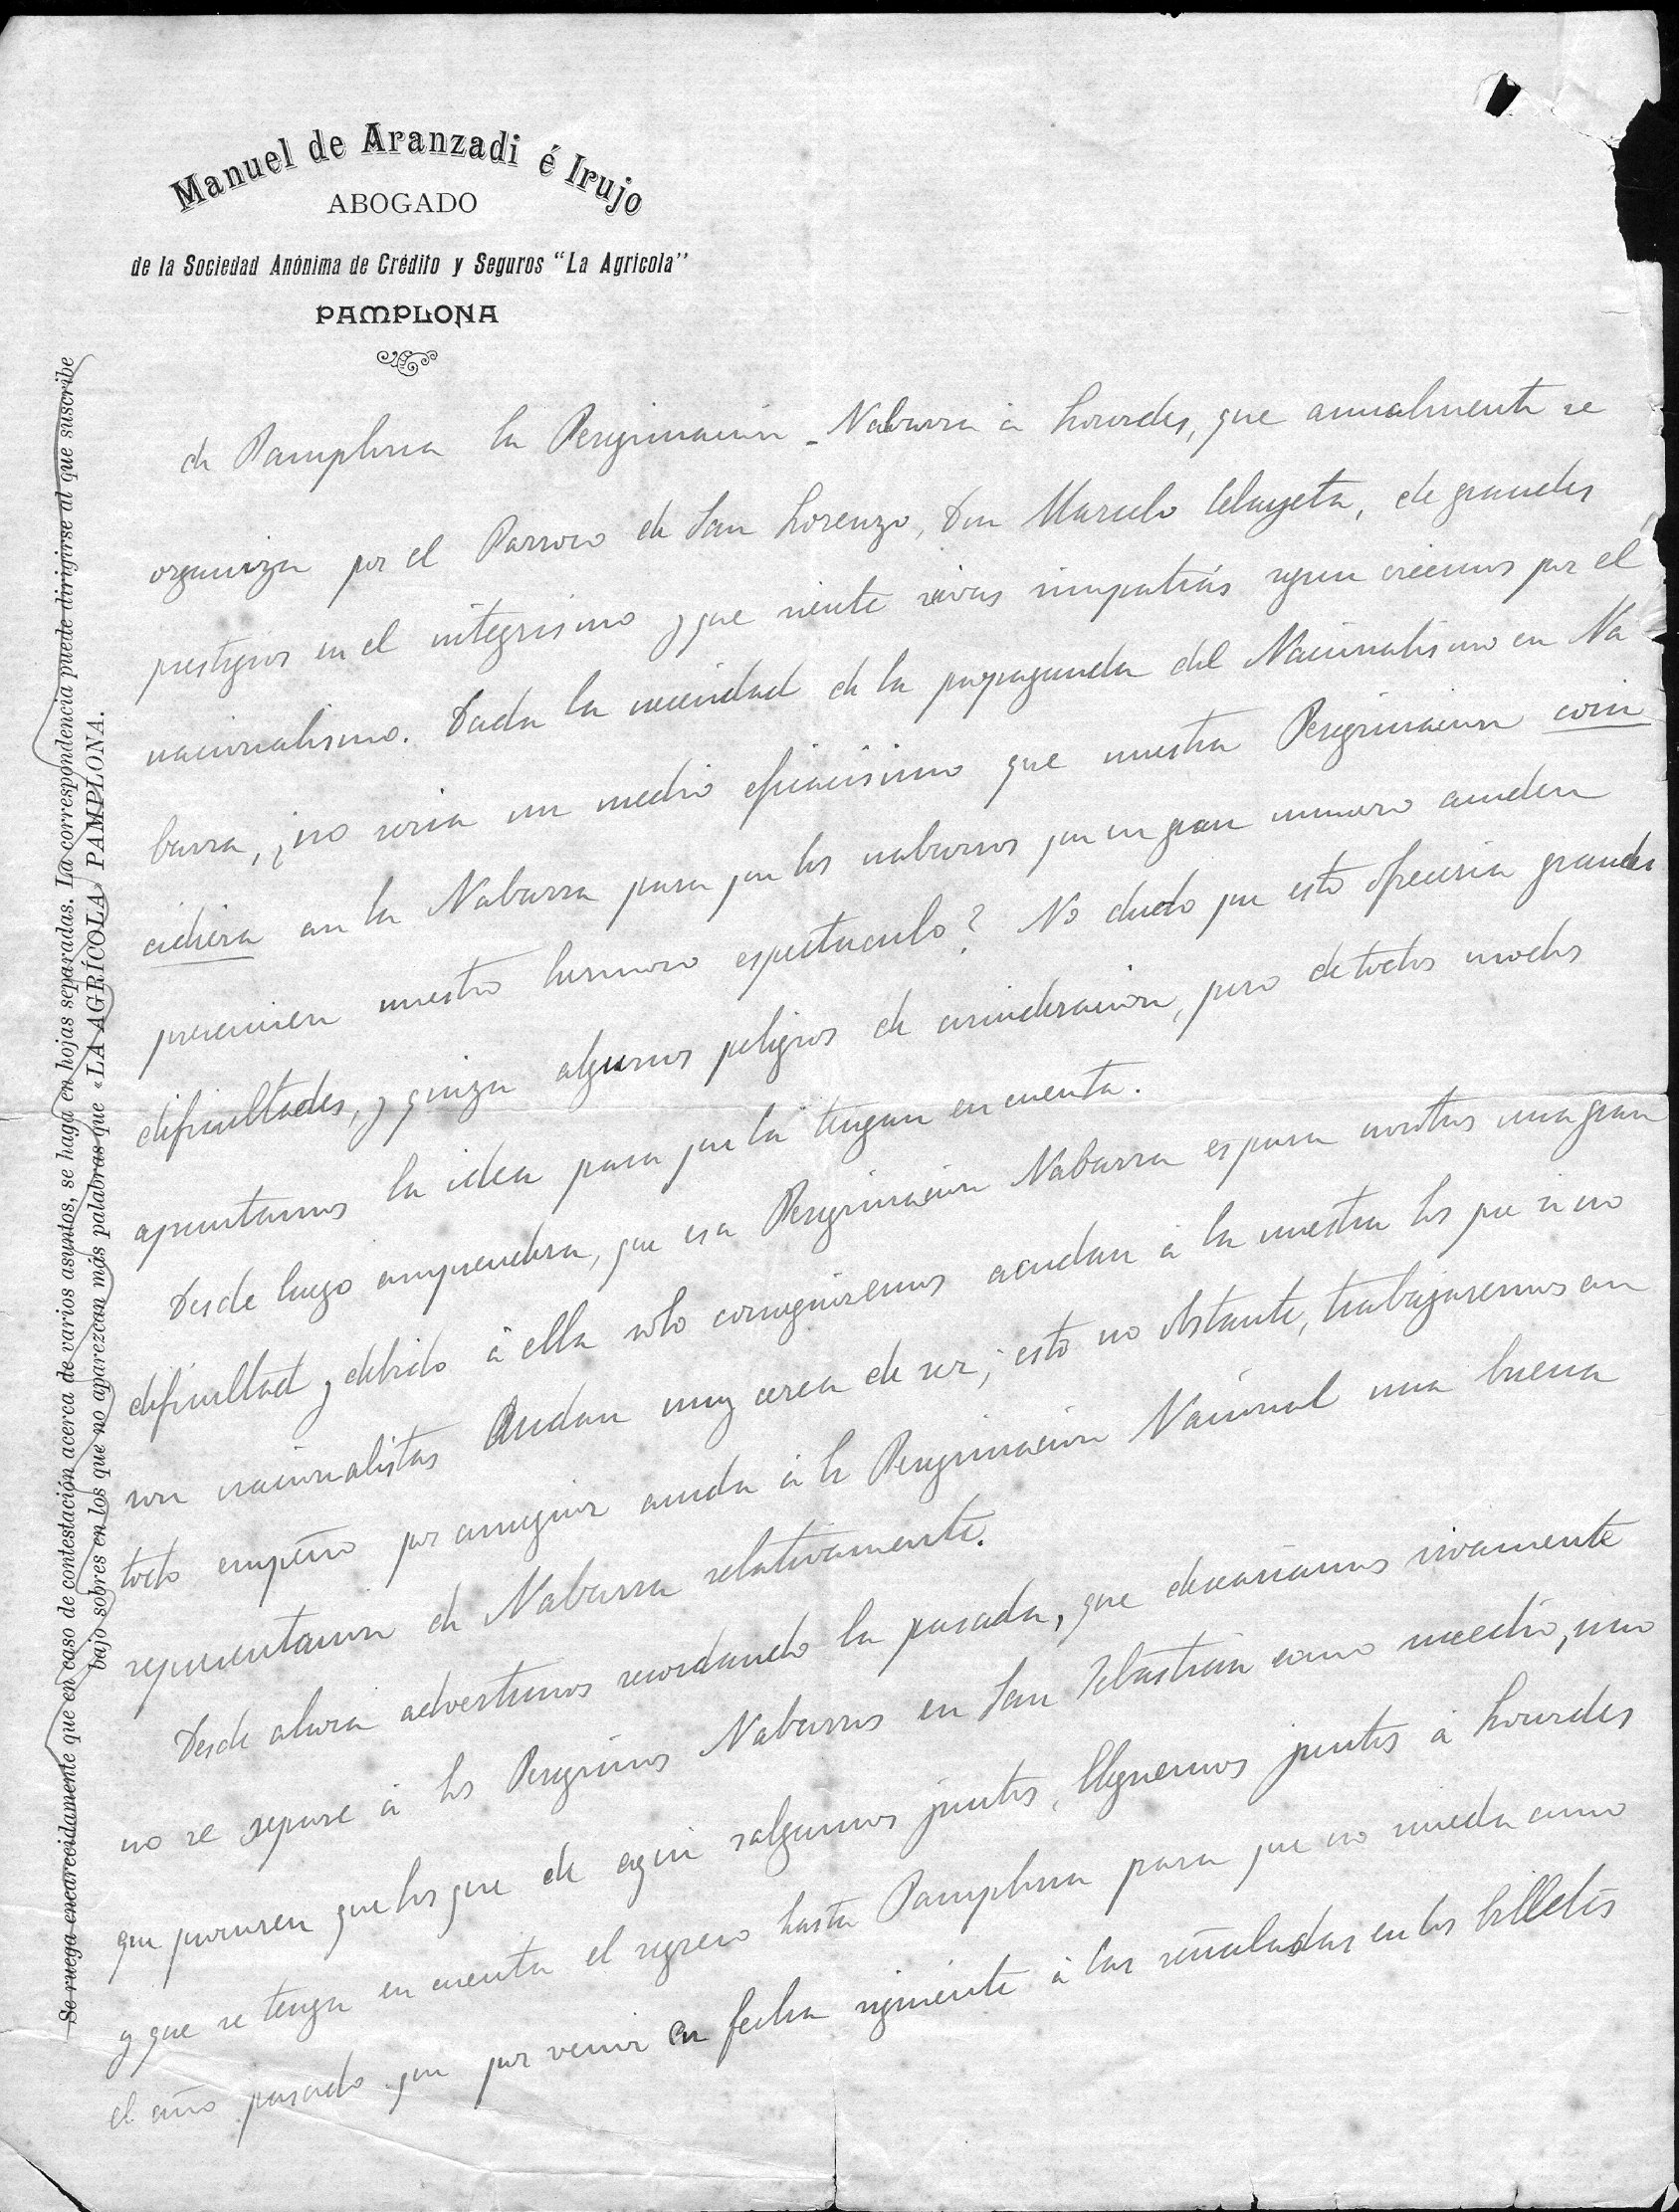 Manuel de Aranzadi é Irujo
ABOGADO
de la Sociedad Anónima de Crédito y Seguros "La Agrícola"
PAMPLONA
Se ruega encarecidamente que en caso de contestación acerca de varios asuntos, se haga en hojas separadas. La correspondencia puede dirigirse al que suscribe
bajo sobres en los que no aparezcan más palabras que «LA AGRÍCOLA» PAMPLONA.
de Pamplona la Peregrinación Nabarra á Lourdes, que anualmente se
organiza por el Parroco de San Lorenzo, Don Marcelo Celayeta, de grandes
prestigios en el integrismo y que siente vivas simpatías segun creemos por el
nacionalismo. Dada la necesidad de la propaganda del Nacionalismo en Na
barra, ¿no seria un medio eficacisimo que nuestra Peregrinacion coin
cidiera con la Nabarra para que los nabarros que en gran numero acuden
presencien nuestro hermoso espectaculo? No dudo que esto ofreceria grandes
dificultades, y quiza algunos peligros de consideracion, pero de todos modos
apuntamos la idea para que la tengan en cuenta.
Desde luego comprendera, que esa Peregrinación Nabarra es para nosotros una gran
dificultad y debido á ella solo conseguiremos acudan á la nuestra los que si no
son nacionalistas andan muy cerca de ser; esto no obstante, trabajaremos con
todo empeño por conseguir acuda á la Peregrinación Nacional una buena
representacion de Nabarra relativamente.
Desde ahora advertimos recordando la pasada, que deseariamos vivamente
no se separe á los Peregrinos Nabarros en San Sebastián como sucedio, sino
que procuren que los que de aqui salgamos juntos, lleguemos juntos á Lourdes
y que se tenga en cuenta el regreso hasta Pamplona para que no suceda como
el año pasado que por venir en fecha siguiente á las señaladas en los billetes